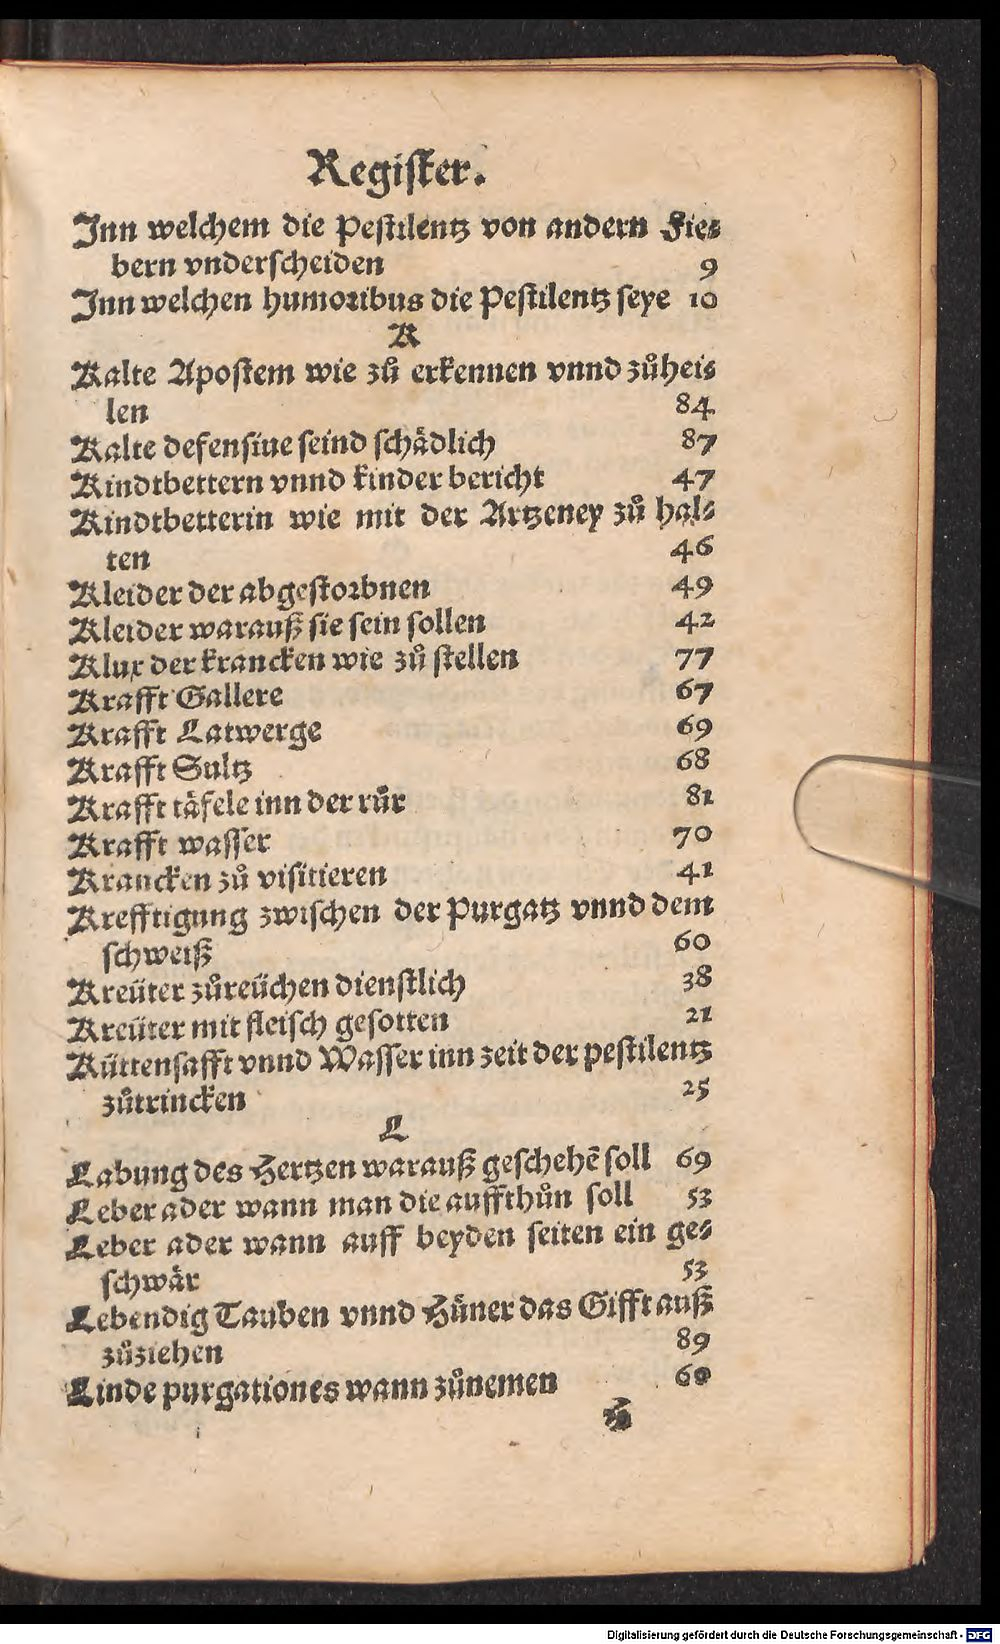 Register.
Jnn welchem die Pestilentz von andern Fie⸗
bern vnderscheiden 9
Jnn welchen humoribus die Pestilentz seye 10
K
Kalte Apostem wie zů erkennen vnnd zůhei⸗
len 84
Kalte defensiue seind schådlich 87
Kindtbettern vnnd kinder bericht 47
Kindtbetterin wie mit der Artzeney zů hal⸗
ten 46
Kleider der abgestorbnen 49
Kleider warauß sie sein sollen 42
Klux der krancken wie zů stellen 77
Krafft Gallere 67
Krafft Latwerge 69
Krafft Sultz 68
Krafft tåfele inn der růr 81
Krafft wasser 70
Krancken zů visitieren 41
Krefftigung zwischen der Purgatz vnnd dem
schweiß 60
Kreüter zůreüchen dienstlich 38
Kreüter mit fleisch gesotten 21
Küttensafft vnnd Wasser inn zeit der pestilentz
zůtrincken 25
L
Labung des Hertzen warauß geschehẽ soll 69
Leber ader wann man die auffthůn soll 53
Leber ader wann auff beyden seiten ein ge⸗
schwår 53
Lebendig Tauben vnnd Hüner das Gifft auß
zůziehen 89
Linde purgationes wann zůnemen 60
Digitalisierung gefördert durch die Deutsche Forschungsgemeinschaft - DFG